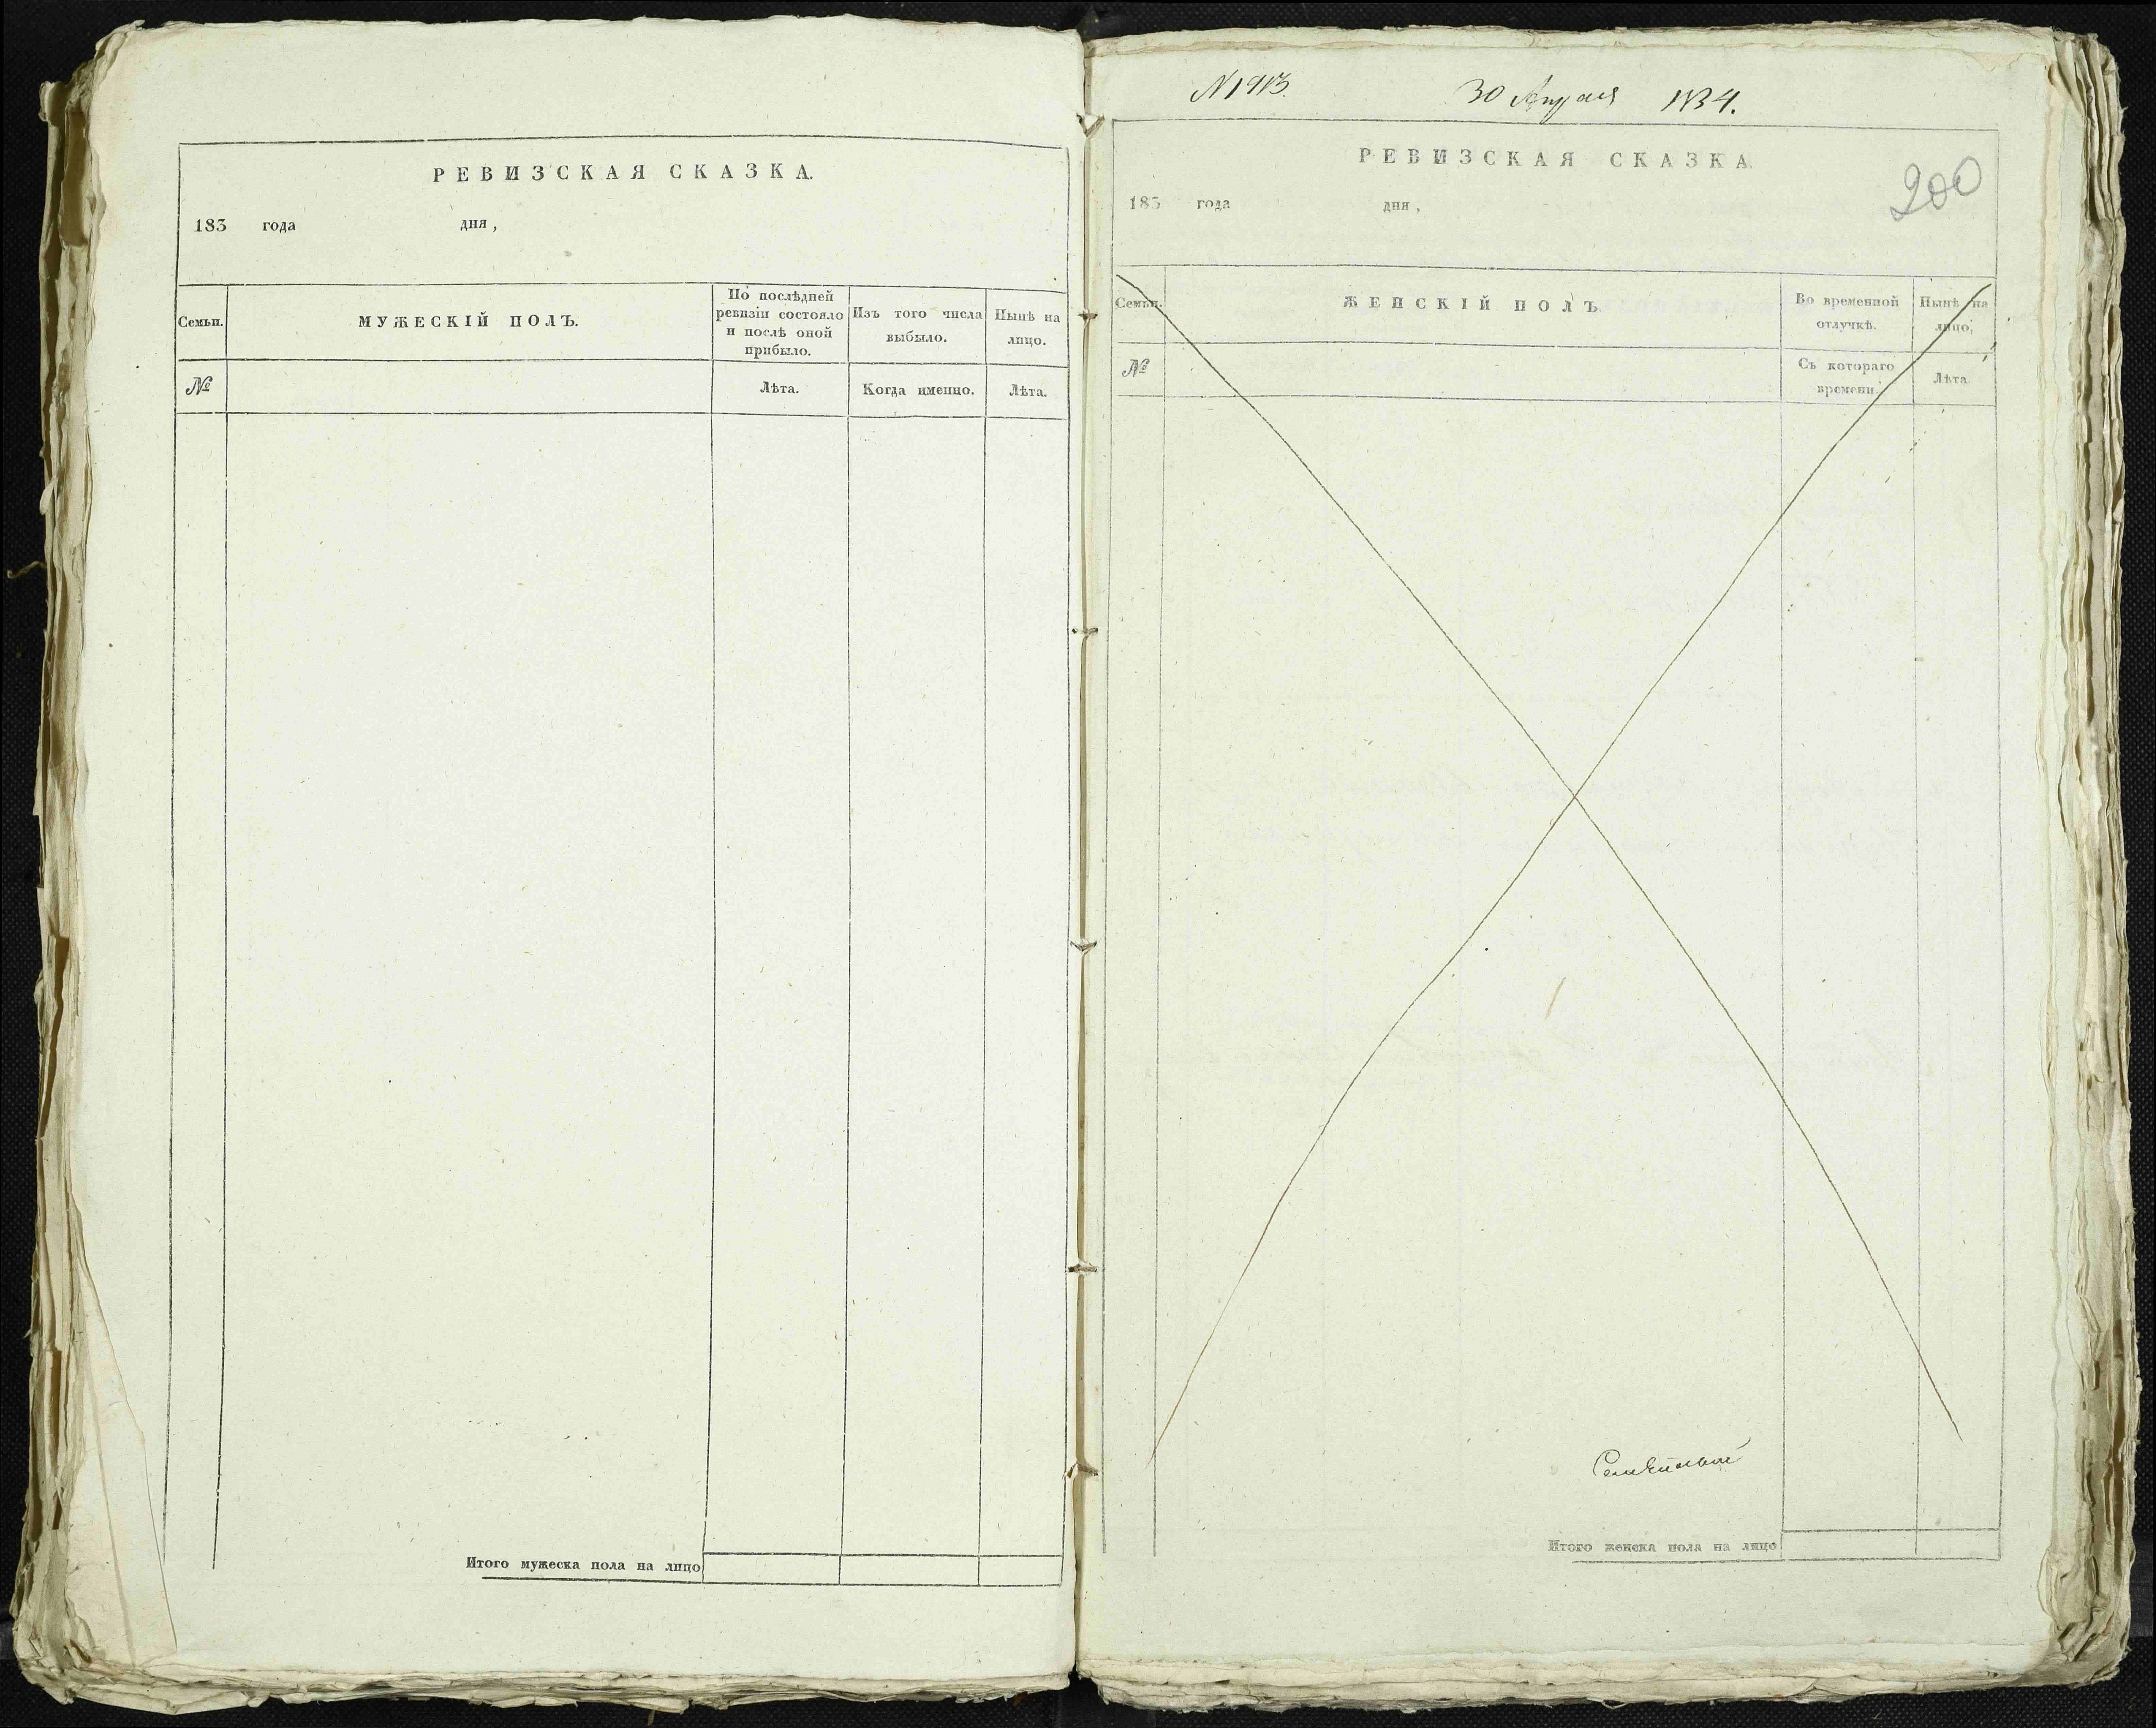 РЕВИЗСКАЯ СКАЗКА.
183 года дня,
Семьи.
МУЖЕСКІЙ ПОЛЪ.
По послѣдней
ревизіи состояло
и послѣ оной
прибыло.
Изъ того числа
выбыло.
Нынѣ на
лицо.
№
Лѣта.
Когда именно.
Лѣта.
Итого мужеска пола на лицо
30 Апреля 1834.
200
РЕВИЗСКАЯ СКАЗКА.
183 года дня,
Семьи.
ЖЕНСКІЙ ПОЛЪ.
Во временной
отлучкѣ.
Нынѣ на
лицо.
№
Съ котораго
времени.
Лѣта.
Итого женска пола на лицо